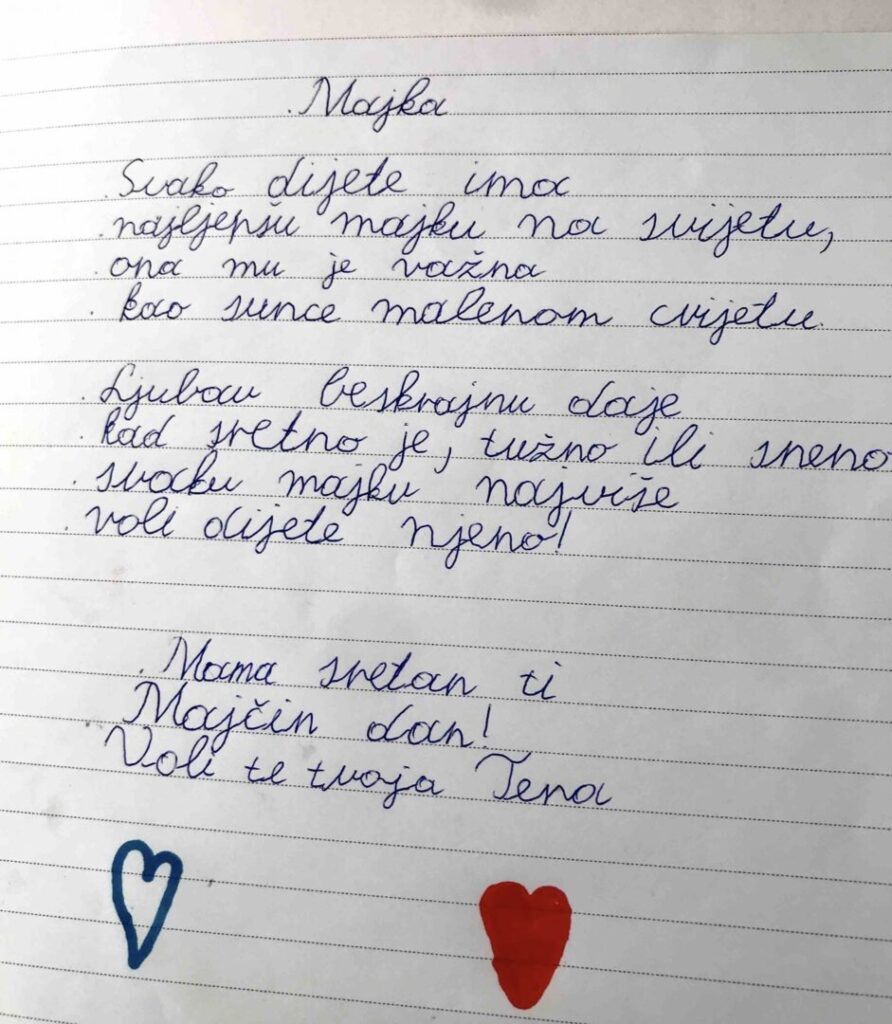 Majka
Svako dijete ima
najljepšu majku na svijetu,
ona mu je važna
kao sunce malenom cvijetu.
Ljubav beskrajnu daje
kad sretno je, tužno ili sneno
svaku majku najviše
voli dijete njeno!
Mama sretan ti
Majčin dan!
Voli te tvoja Tena